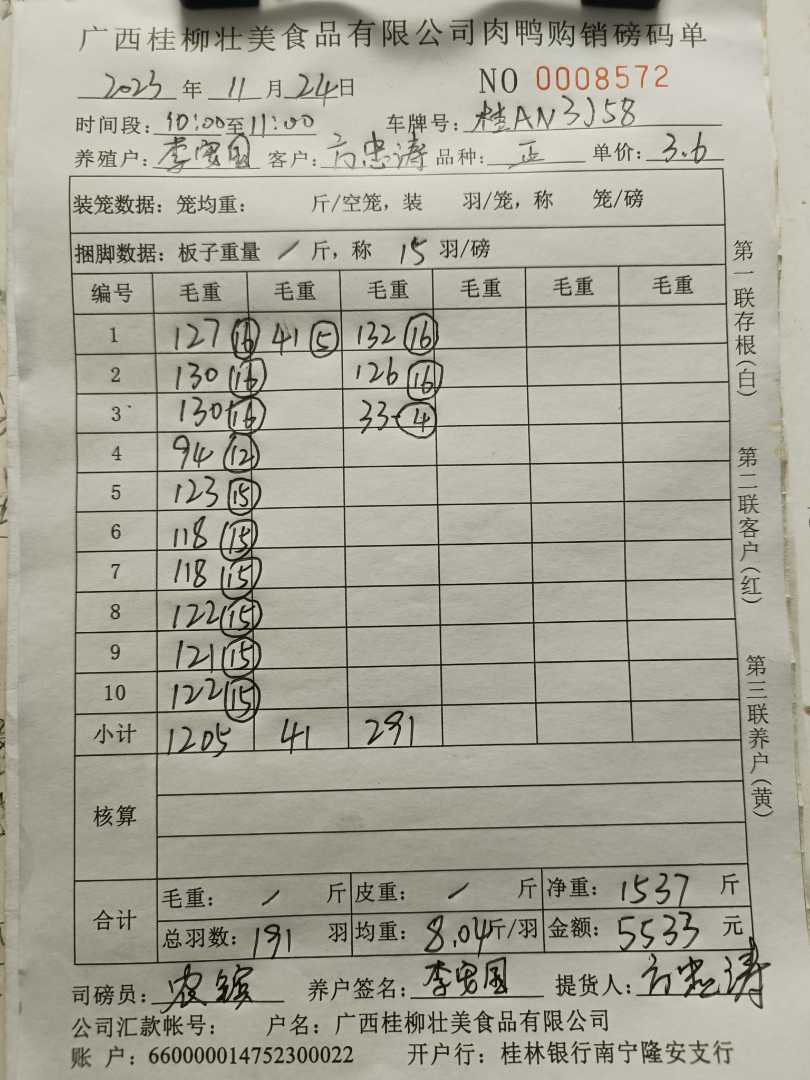 广西桂柳壮美食品有限公司肉鸭购销磅码单
2023 年 11 月 24 日 NO 0008572
时间段: 10:00至11:00 车牌号: 桂AN3J58
养殖户: 李宝国 客户: 方忠涛 品种: 正 单价: 3.6
装笼数据: 笼均重: 斤/空笼, 装 羽/笼, 称 笼/磅
捆脚数据: 板子重量 / 斤, 称 15 羽/磅
编号 毛重 毛重 毛重 毛重 毛重 毛重
1 127 16 41 5 132 16
2 130 16 126 16
3 130 16 33 4
4 94 12
5 123 15
6 118 15
7 118 15
8 122 15
9 121 15
10 122 15
小计 1205 41 291
核算
合计 毛重: / 斤 皮重: / 斤 净重: 1537 斤
总羽数: 191 羽 均重: 8.04 斤/羽 金额: 5533 元
司磅员: 养户签名: 李宝国 提货人: 方忠涛
公司汇款帐号: 户名: 广西桂柳壮美食品有限公司
账 户: 660000014752300022 开户行: 桂林银行南宁隆安支行
第一联存根(白)
第二联客户(红)
第三联养户(黄)